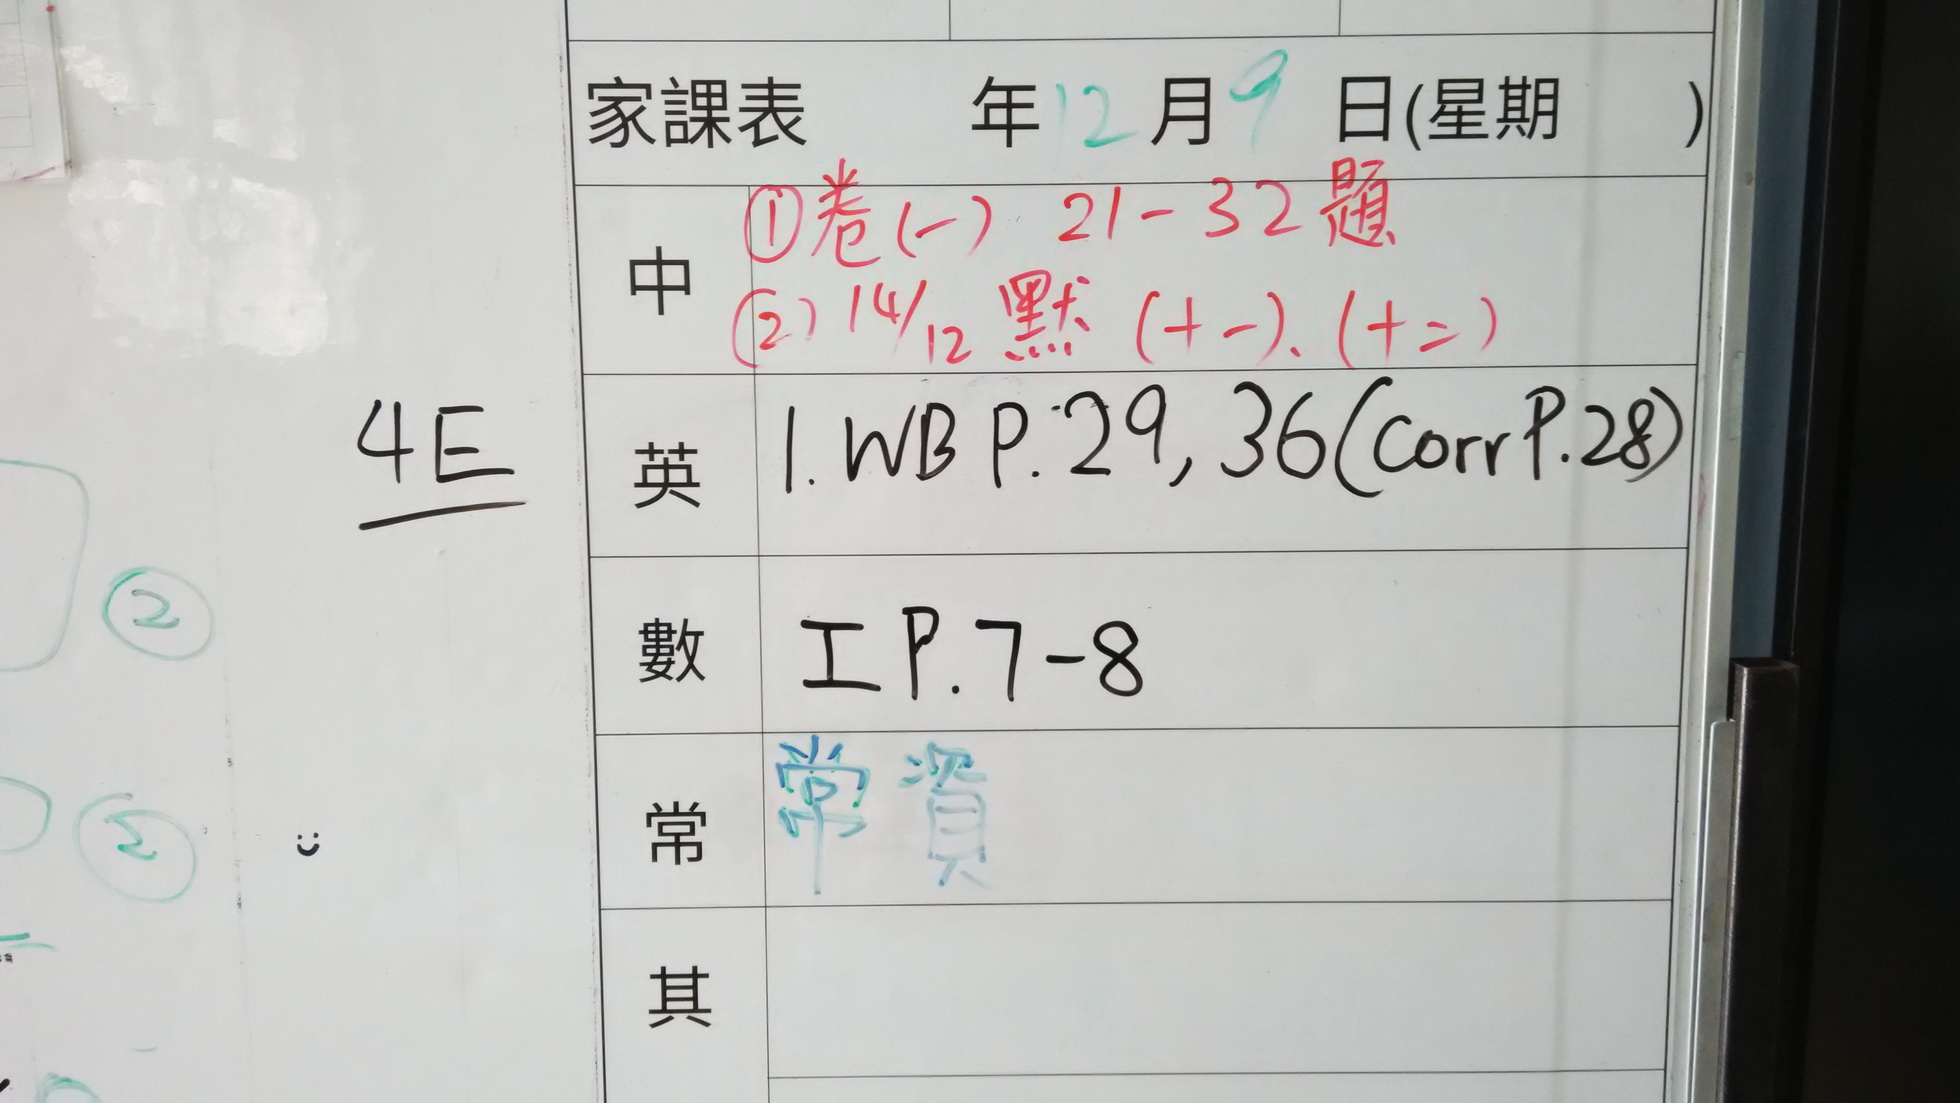 家課表 年12月9日(星期 )
中
①卷(一) 21-32題
② 14/12 默 (十一)、(十二)
4E
英
1. WB P.29, 36(Corr P.28)
數
工 P.7-8
②
常
常資
②
其